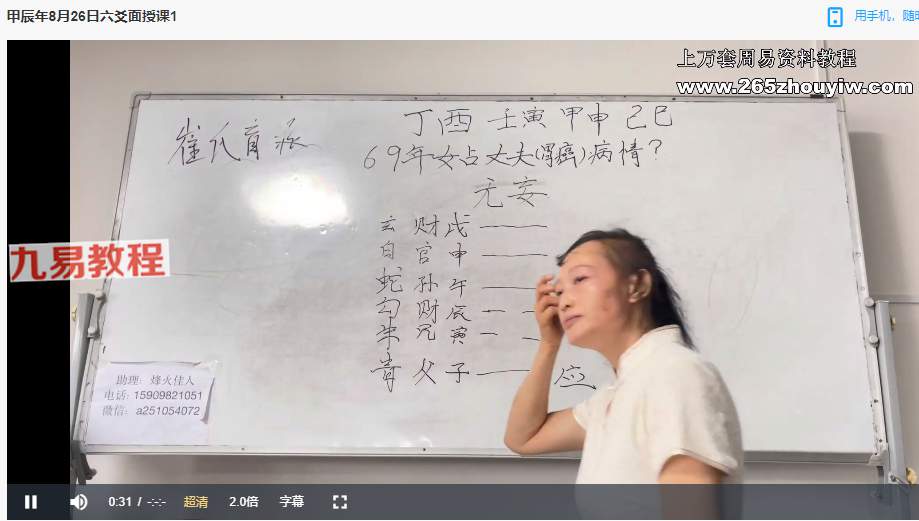 甲辰年8月26日六爻面授课1
用手机，随时
上万套周易资料教程
www.265zhouyiw.com
丁酉 壬寅 甲申 己巳
崔氏盲派
69年女占丈夫(胃癌)病情?
无妄
玄 财 戌
白 官 申
蛇 孙 午
勾 财 辰
朱 兄 寅
青 父 子 应
九易教程
助理：烽火佳人
电话：15909821051
微信：a251054072
0:31 / -:-:-
超清
2.0倍
字幕